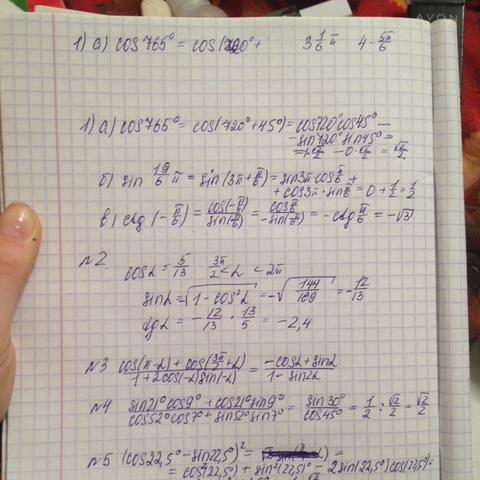 1) а) cos 765° = cos(720° + 3 1/6 π 4 - 5π/6
1) а) cos 765° = cos(720° + 45°) = cos720° cos45° -
- sin720° sin45° =
= 1·√2/2 - 0·√2/2 = √2/2
б) sin 19/6 π = sin(3π + π/6) = sin3π·cos π/6 +
+ cos3π·sin π/6 = 0 + 1/2 = 1/2
в) ctg(-π/6) = cos(-π/6)/sin(-π/6) = cos π/6/-sin(π/6) = -ctg π/6 = -√3
№2
cosα = 5/13 3π/2 < α < 2π
sinα = √(1 - cos²α) = -√(144/169) = -12/13
tgα = -12/13 · 13/5 = -2,4
№3 cos(π-α) + cos(3π/2+α)/1+2cos(-α)sin(-α) = -cosα + sinα/1 - sin2α
№4 sin21° cos9° + cos21° sin9°/cos52° cos7° + sin52° sin7° = sin30°/cos45° = 1/2 : √2/2 = √2/2
№5 (cos22,5° - sin22,5°)² = =
= cos²(22,5) + sin²(22,5) - 2sin(22,5°)cos(22,5°) =
AVON